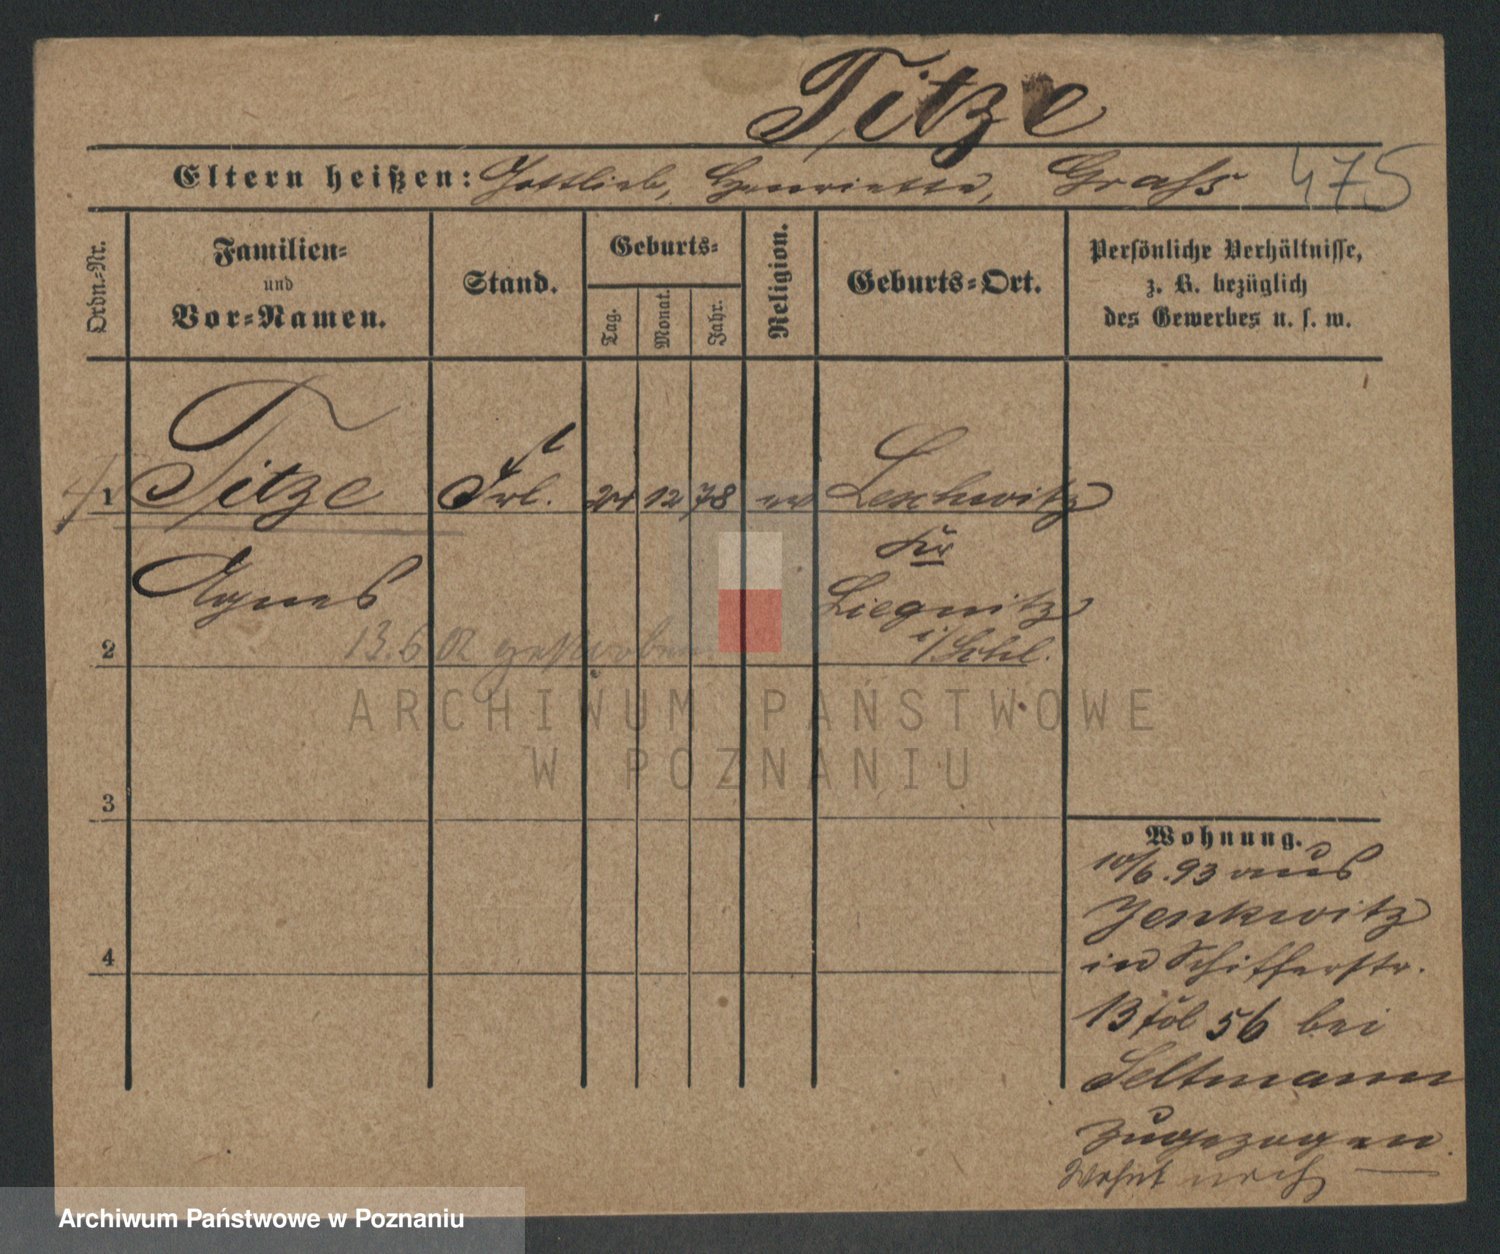 Titze
Eltern heißen: Gottlieb, Henriette, Grafs 475
Ordn.-Nr.
Familien-
und
Vor-Namen.
Stand.
Geburts-
Tag.
Monat.
Jahr.
Religion.
Geburts-Ort.
Persönliche Verhältnisse,
z. B. bezüglich
des Gewerbes u. s. w.
1 Titze Frl. 12 78 ev Leschwitz
Kr
Agnes Liegnitz
i/Schl.
2 13.6.02 gestorben
ARCHIWUM PAŃSTWOWE
W POZNANIU
3
Wohnung.
10/6.93 aus
Jenkwitz
in Schifferstr.
4
13 fol 56 bei
Seltmann
zugezogen.
Wohnt noch
Archiwum Państwowe w Poznaniu